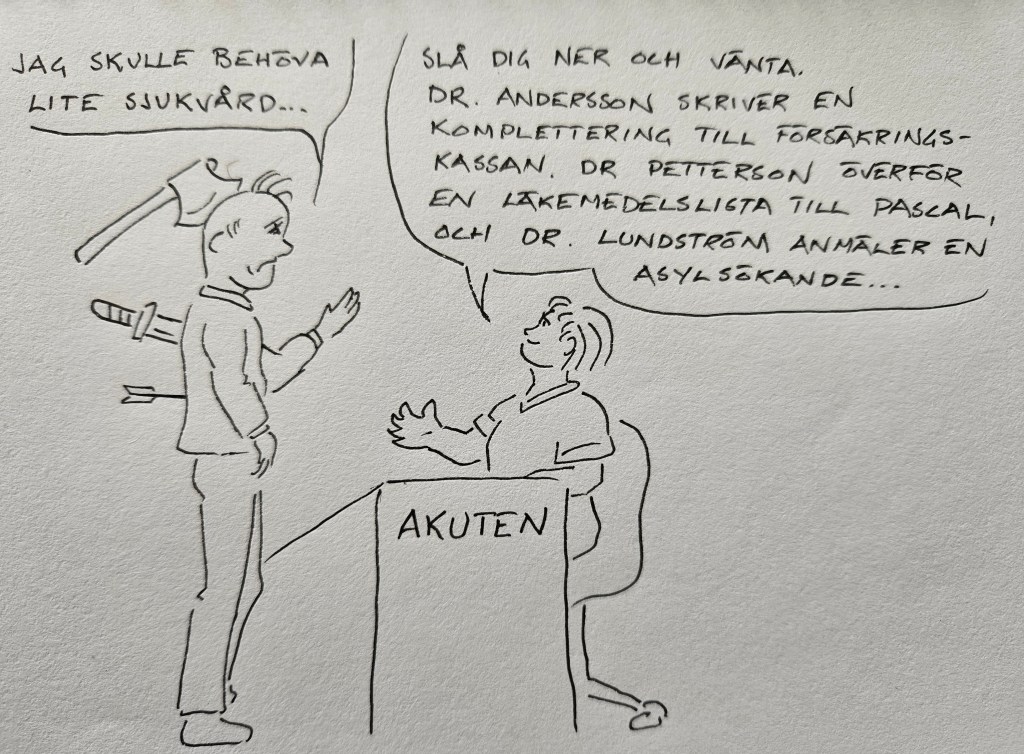 JAG SKULLE BEHÖVA
LITE SJUKVÅRD...
SLÅ DIG NER OCH VÄNTA.
DR. ANDERSSON SKRIVER EN
KOMPLETTERING TILL FÖRSÄKRINGS-
KASSAN. DR PETTERSON ÖVERFÖR
EN LÄKEMEDELSLISTA TILL PASCAL,
OCH DR. LUNDSTRÖM ANMÄLER EN
ASYLSÖKANDE...
AKUTEN